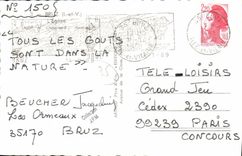 N° 1505
" TOUS LES GOUTS
SONT DANS LA
NATURE "
BEUCHER Jacqueline
Les Ormeaux
35170 BRUZ
TELE-LOISIRS
Grand Jeu
Cédex 2390
99239 PARIS
CONCOURS